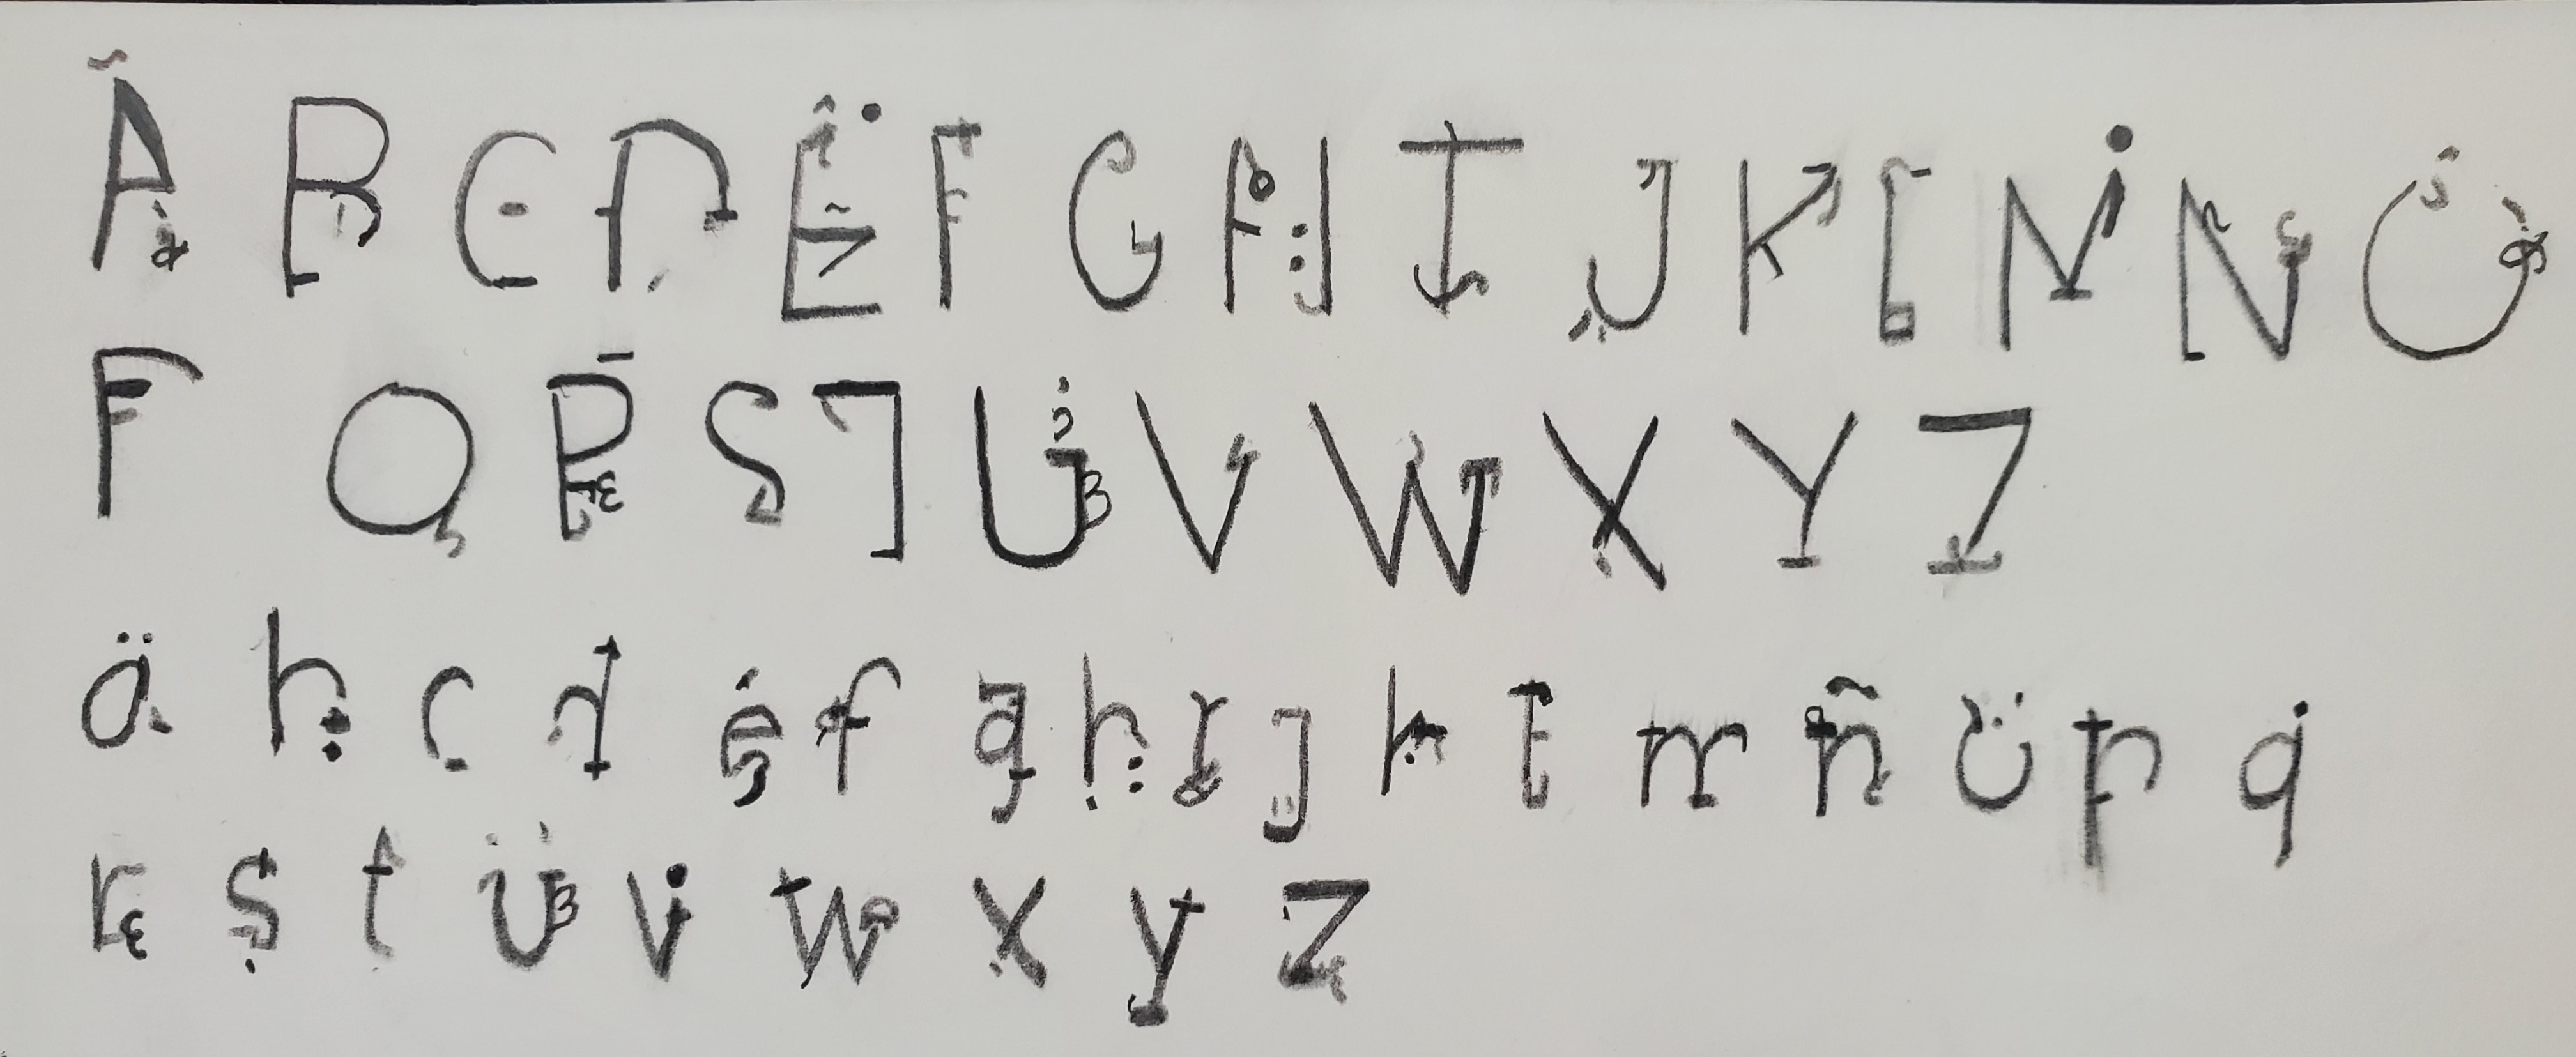 A B C D E F G H I J K L M N O
P Q R S T U V W X Y Z
ä b c d e f g h i j k l m ñ ö p q
r s t ü v w x y z